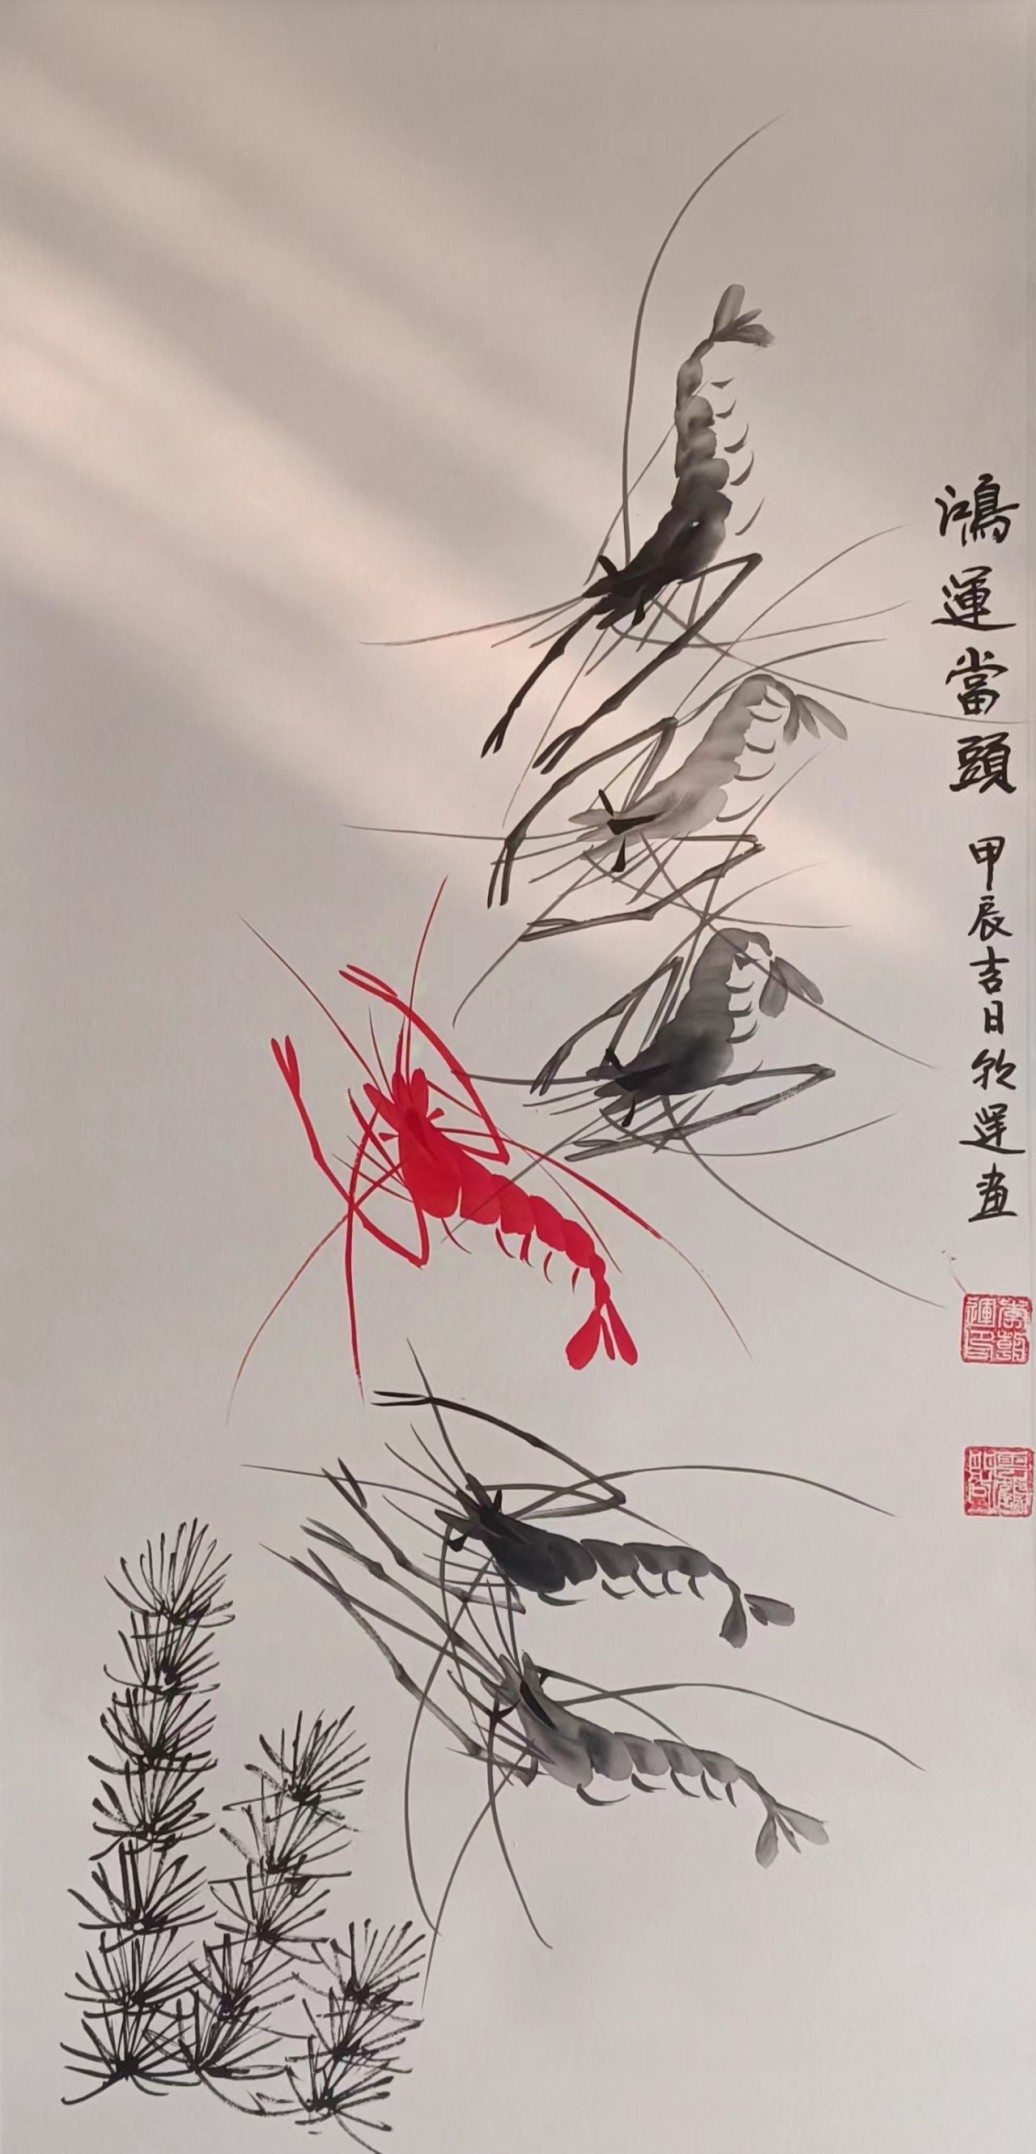 鴻運當頭 甲辰吉日 運畫